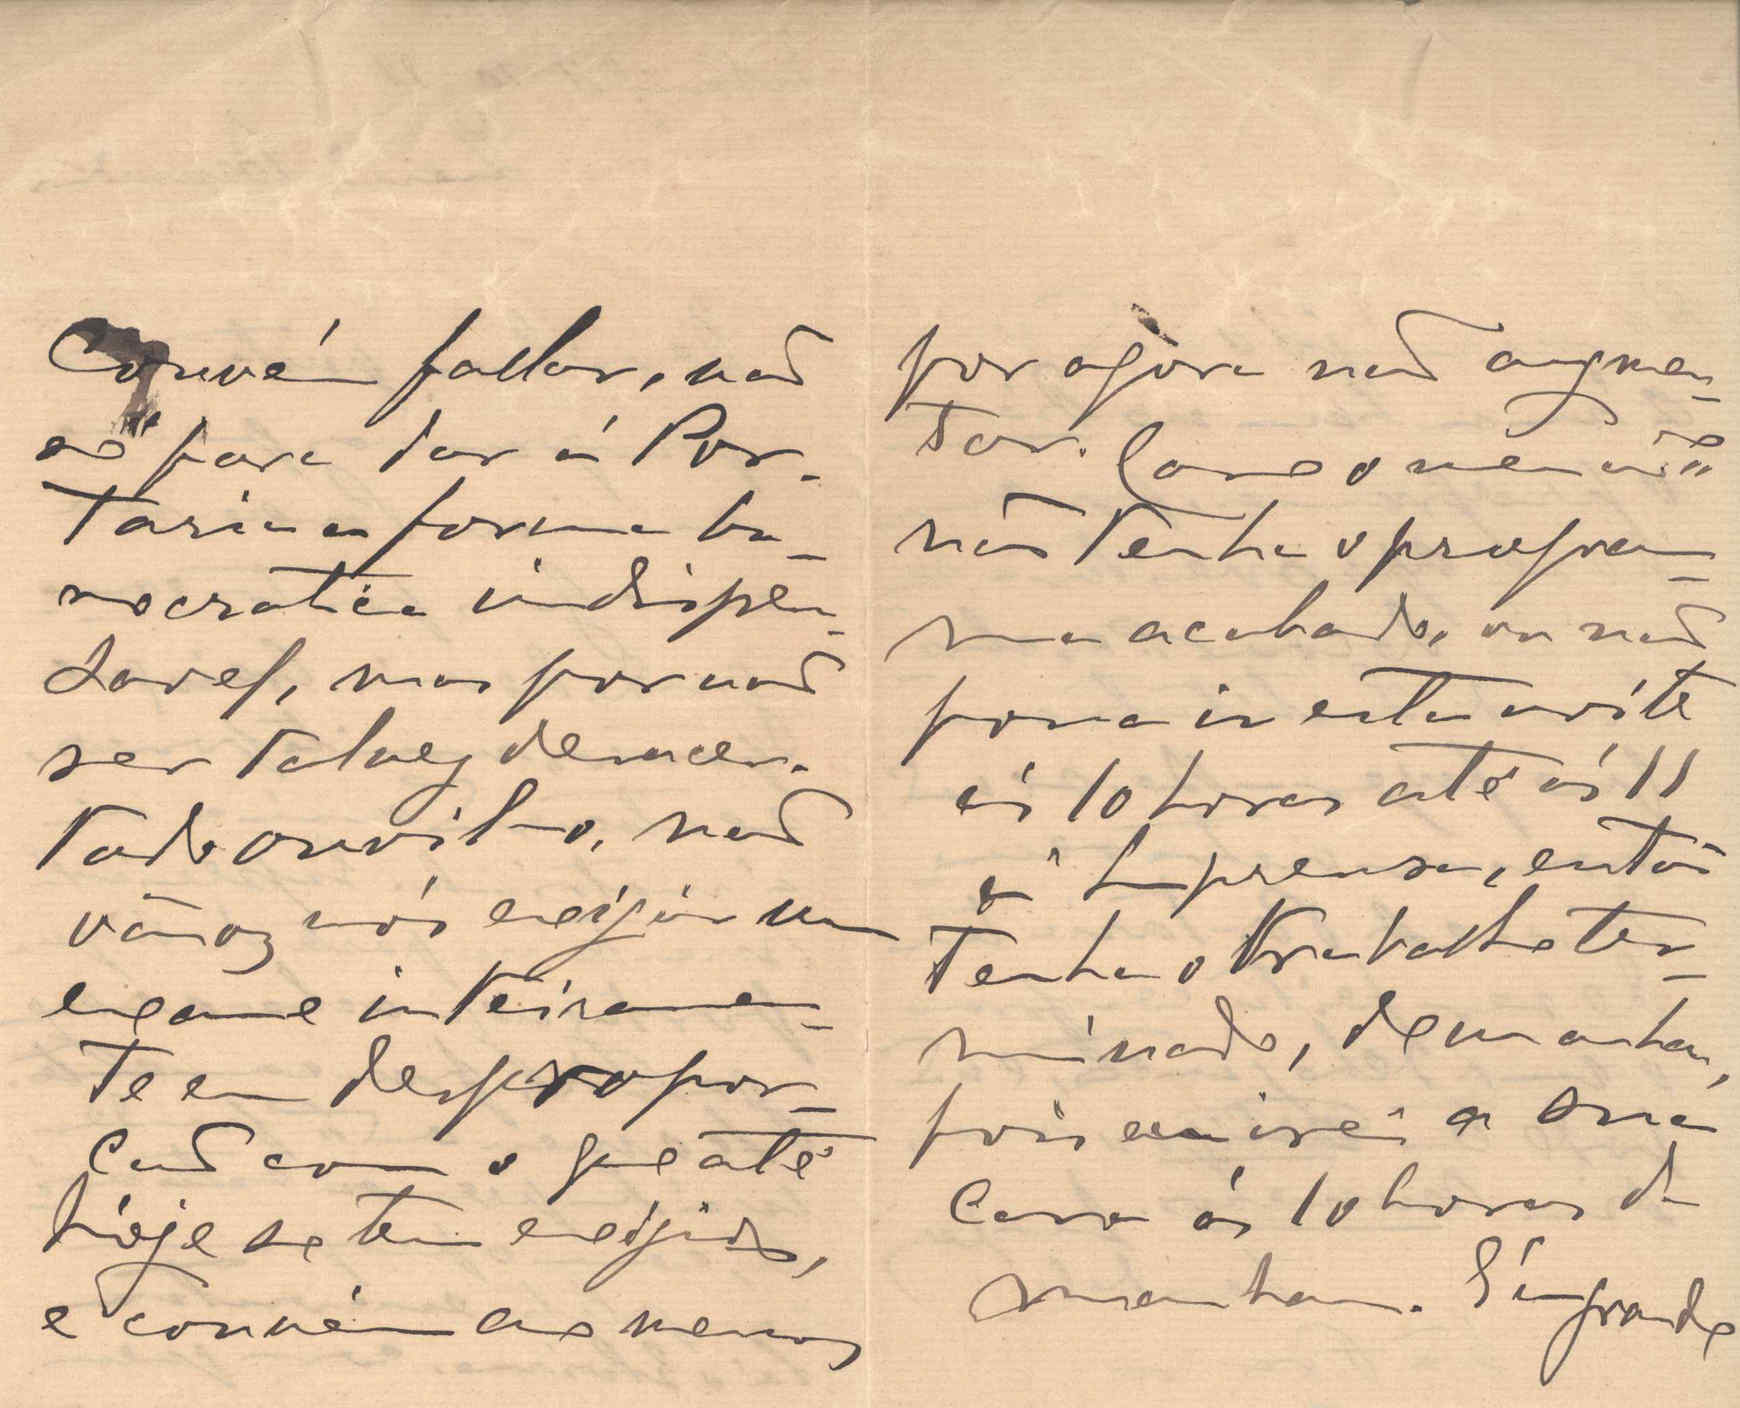 Convém fallar, não
só para dar á Por-
taria a forma bu-
rocratica indispen-
savel, mas por não
ser talvez desacer-
tado ouvil-o, não
vamos nós exigir um
exame inteiramen-
te em despropor-
ção com o que até
hoje se tem exigido,
e convém ao menos
por agora não augmen-
tar. Caso o meu
não tenha o program-
ma acabado, ou não
possa ir esta noite
ás 10 horas até ás 11
á Imprensa, então
tenha o trabalho ter-
minado, de manhan,
pois eu irei a sua
casa ás 10 horas da
manhan. É grande